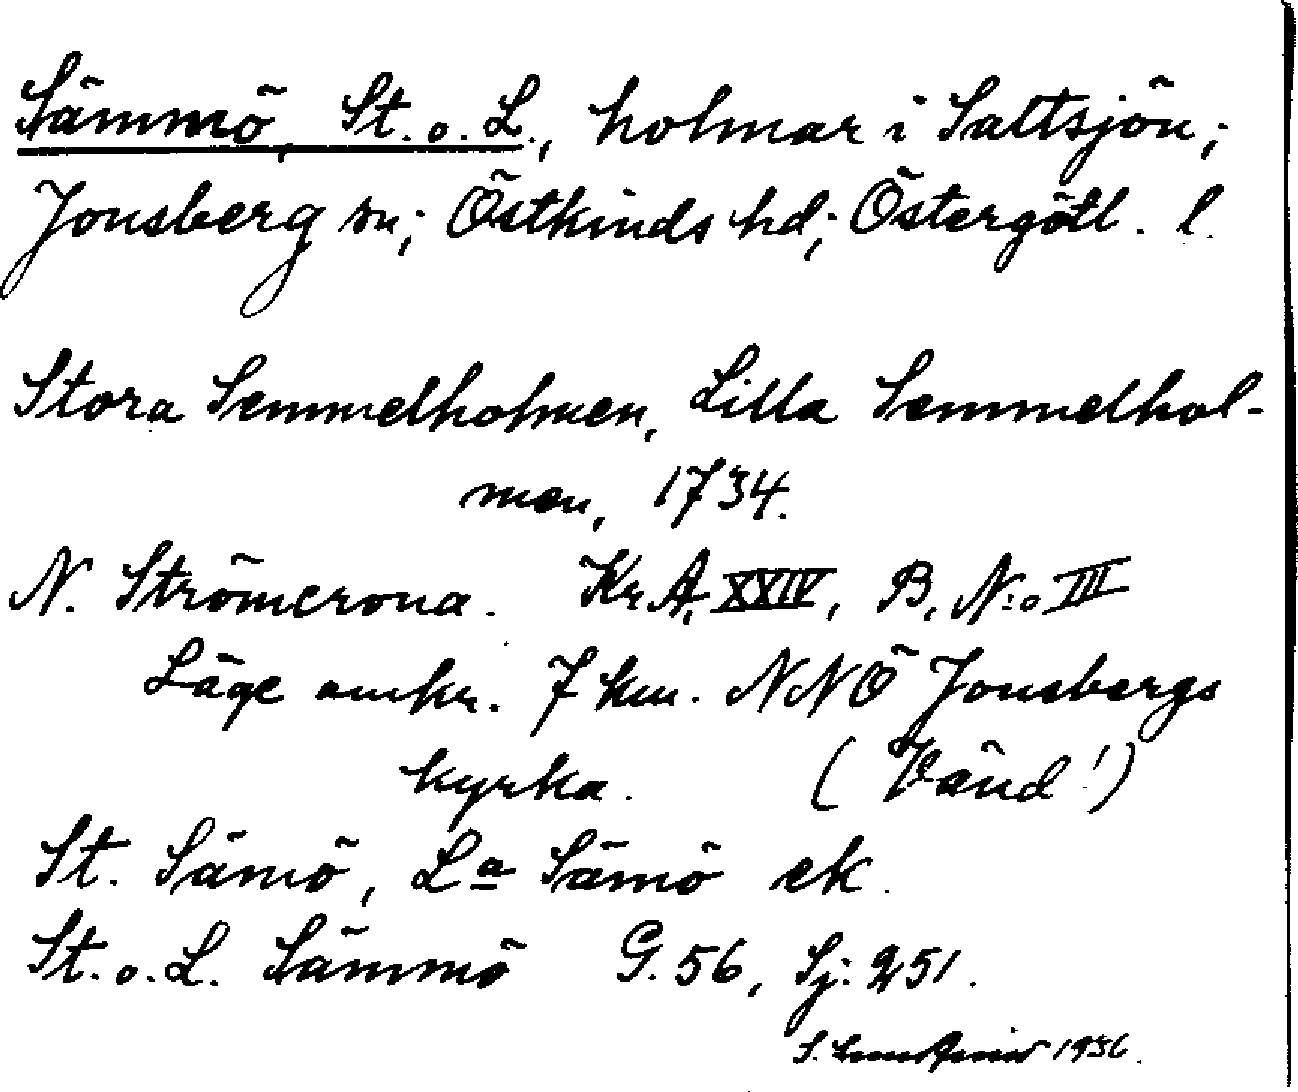 Sämmö, St. o. L., holmar i Saltsjön;
Jonsberg sn; Östkinds hd; Östergötl. l.
Stora Semmelholmen, Lilla Semmelhol-
men, 1734.
N. Strömcrona. Kr. A. XXIV, B. N:o III
Läge omkr. 7 km. NNÖ Jonsbergs
kyrka. (Vänd!)
St. Sämö, La Sämö ek.
St. o. L. Sämmö G. 56, Sj: 251.
S. 1936.